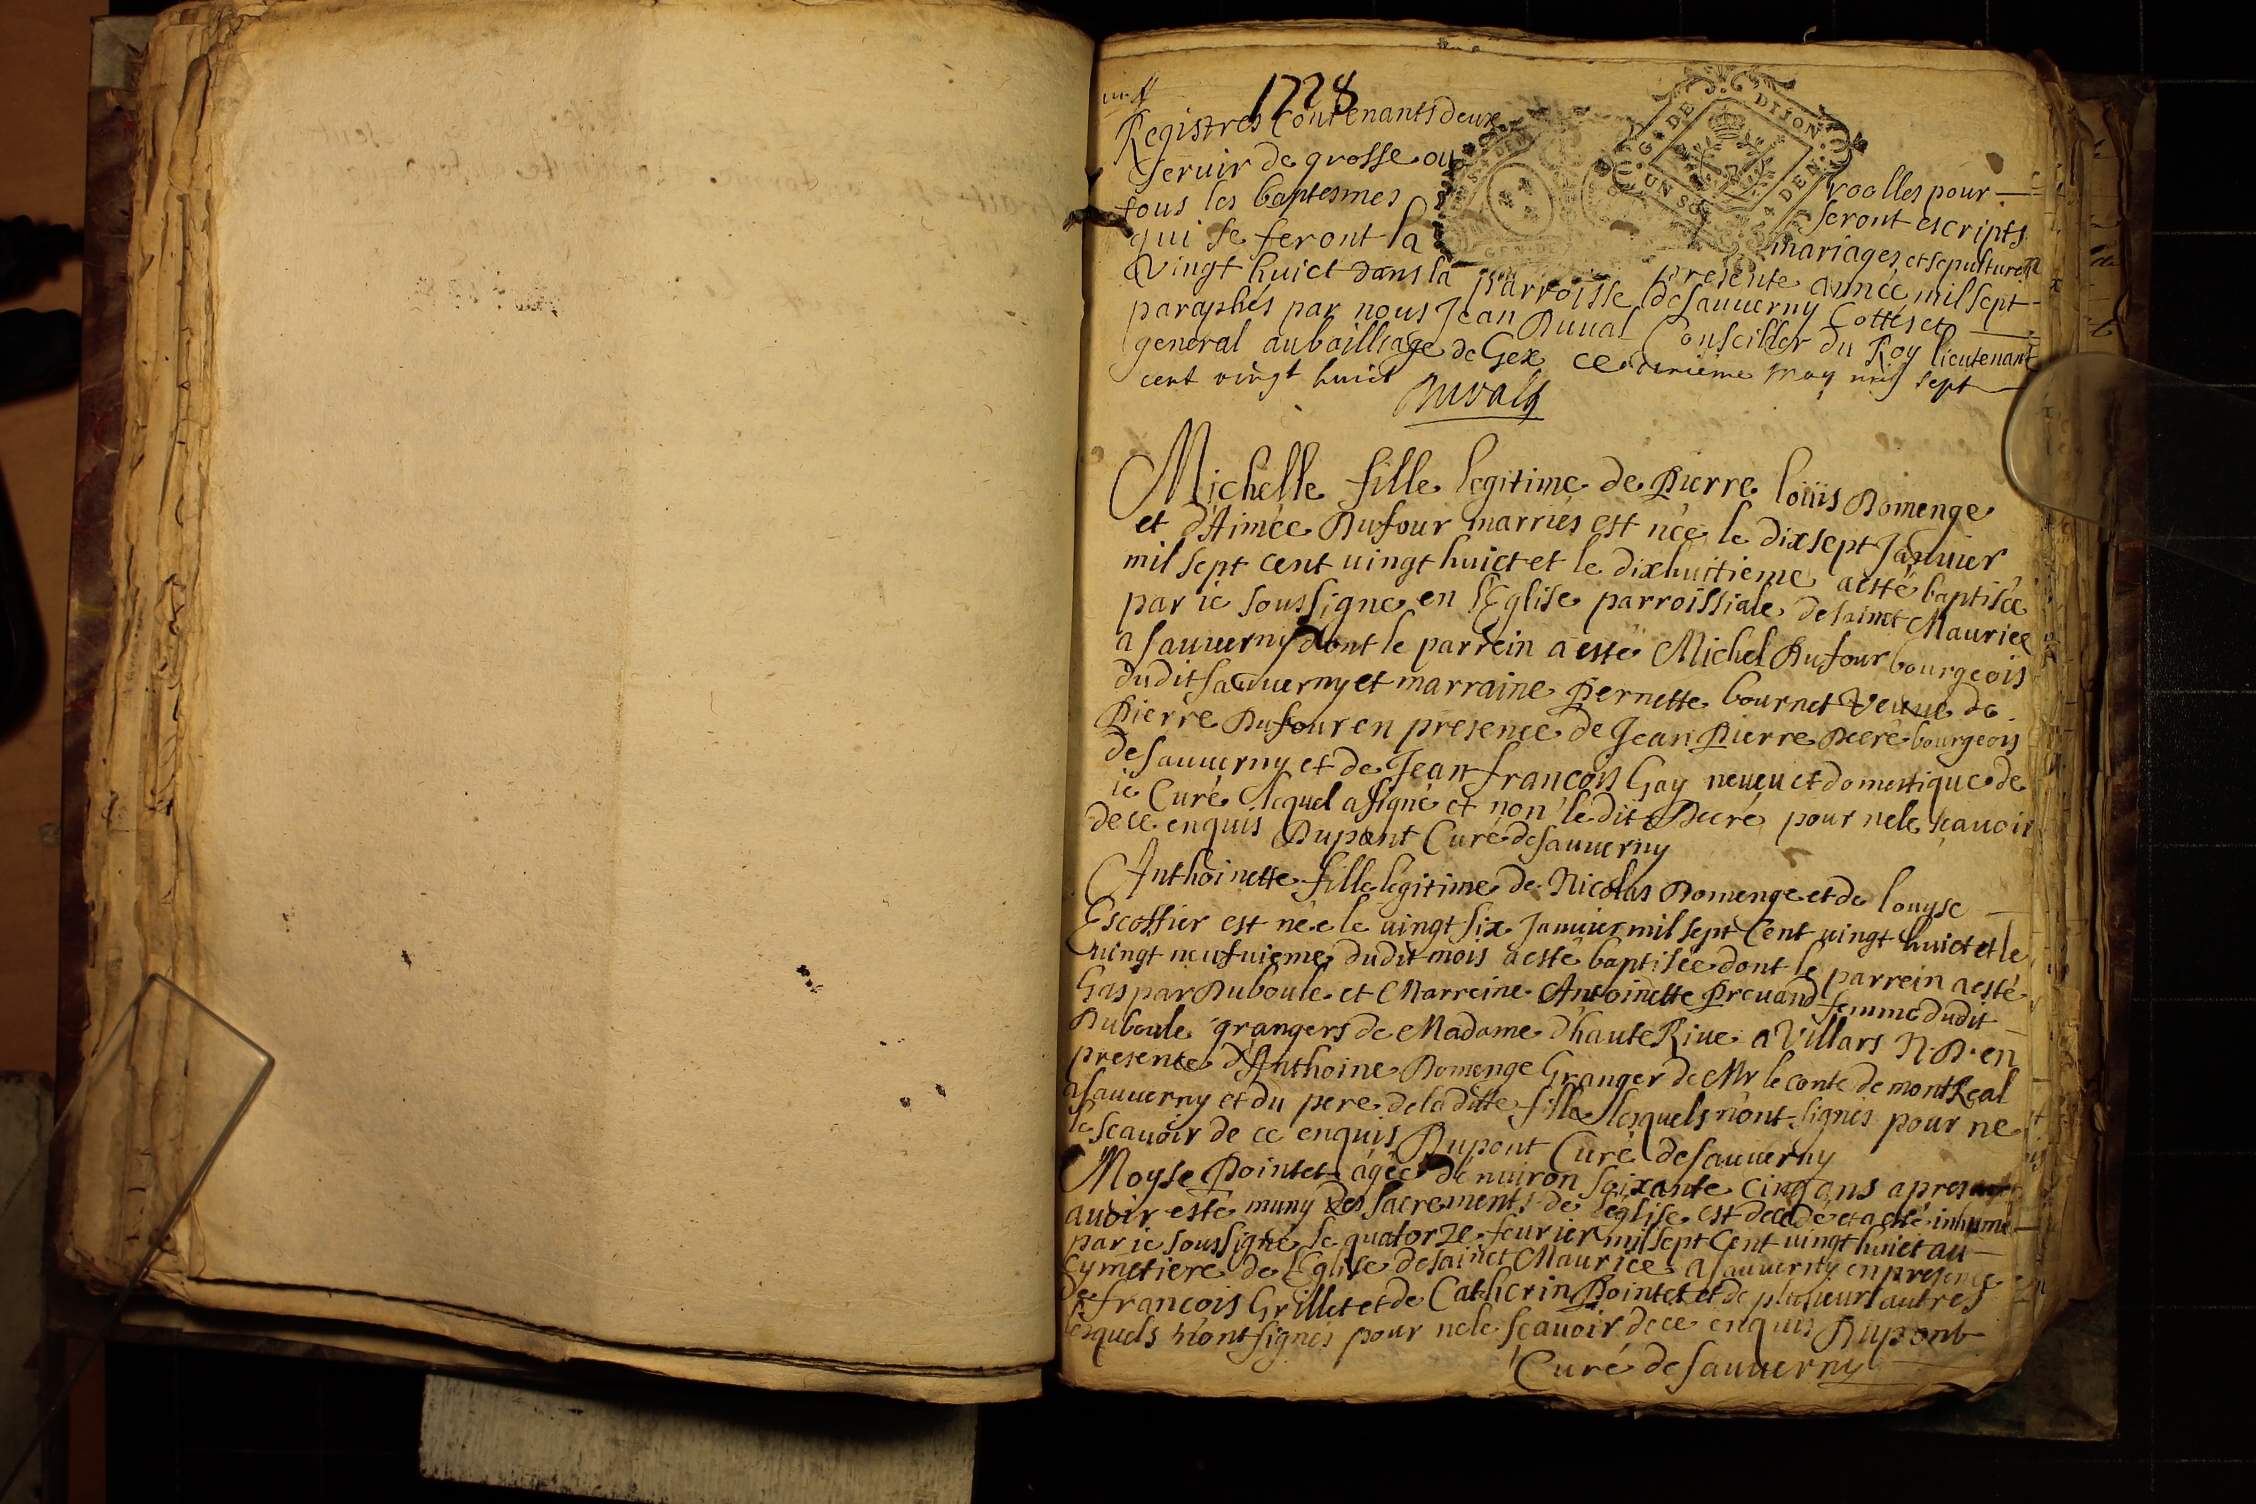 1728
Registres Contenants deux roolles pour
servir de grosse ou seront escripts
tous les baptesmes mariages et sepultures
qui se feront la presente année mil sept
vingt huict dans la parroisse de sauverny Cottés et
paraphés par nous Jean Duval Conseiller du Roy lieutenant
general au bailliage de Gex ce may mil sept
cent vingt huict
Duval
G. DE DIJON
UN SOL
GEN DE
Michelle fille legitime de Pierre loüis Domenge
et d'Aimée Dufour marriés est née le dixsept Januier
mil sept cent uingt huict et le dixhuitieme a esté baptisée
par ie soussigne en l'Eglise parroissiale de sainct Maurice
a sauuerny dont le parrein a esté Michel Dufour bourgeois
dudit sauuerny et marraine Pernette bournet Veuue de
Pierre Dufour en presence de Jean Pierre Decré bourgeois
de sauuerny et de Jean francois Gay neueu et domestique de
ie Curé lequel a signé et non le dit Decré pour ne le scauoir
de ce enquis Dupont Curé de sauuerny
Anthoinette fille legitime de Nicolas Domenge et de louyse
Escoffier est née le uingt six Januier mil sept Cent uingt huict et le
uingt neufuieme dudit mois a esté baptisée dont le parrein a esté
Gaspar Duboule et Marreine Antoinette Preuand femme dudit
Duboule grangers de Madame d'hauteRiue a Villars N.D. en
presence d'Anthoine Domenge Granger de Mr le conte de montReal
a sauuerny et du pere de la ditte fille lesquels n'ont signés pour ne
le scauoir de ce enquis Dupont Curé de sauuerny
Moyse Pointet agée de nuiron soixante cinq ans apres
auoir esté muny des sacrements de l'eglise est decedé et a esté inhumé
par ie soussigné le quatorze feurier mil sept Cent uingt huict au
Cymetiere de l'Eglise de sainct Maurice a sauuerny en presence
de francois Grillet et de Catherin Pointet et de plusieurs autres
lesquels n'ont signés pour ne le scauoir de ce enquis Dupont
Curé de sauuerny